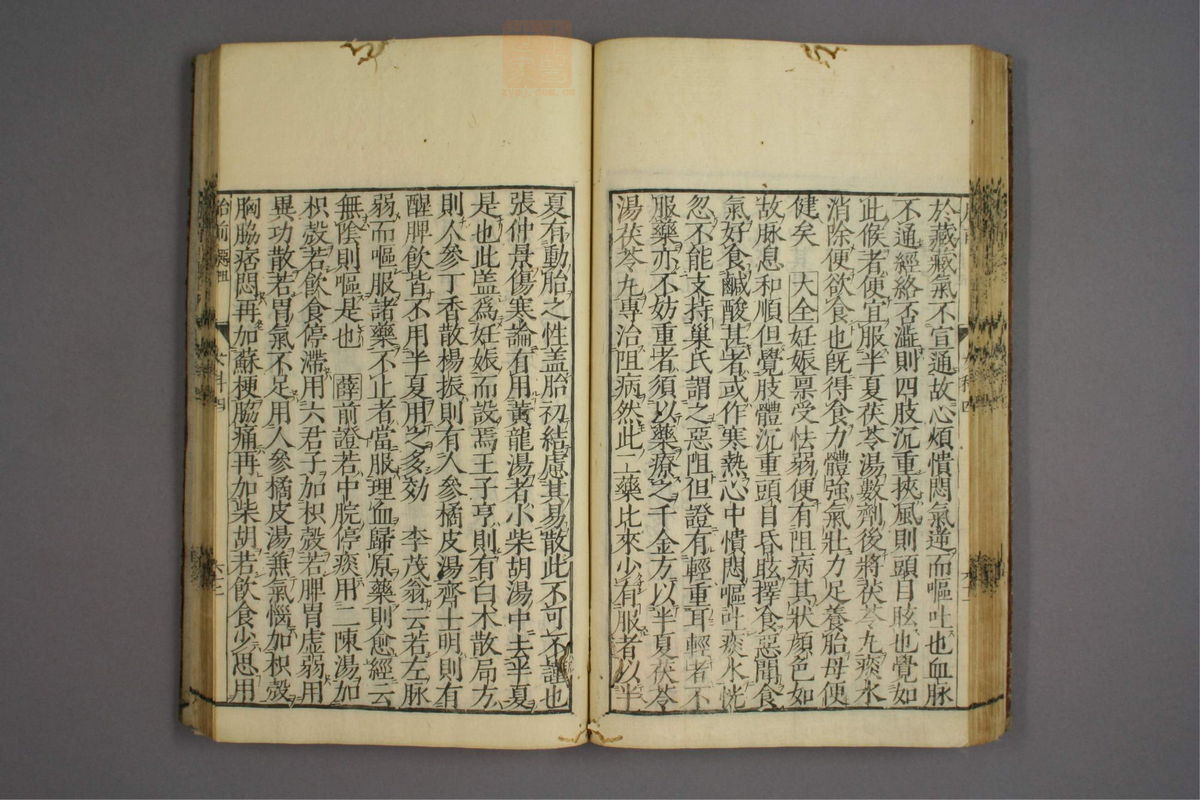 於藏藏氣不宣通故心煩憒悶氣逆而嘔吐也血脉
不通經絡否澁則四肢沉重挾風則頭目眩也覺如
此候者便宜服半夏茯苓湯數劑後將茯苓丸痰水
消除便欲食也既得食力體強氣壯力足養胎母便
健矣 大全妊娠禀受怯弱便有阻病其狀顏色如
故脉息和順但覺肢體沉重頭目昏眩擇食惡聞食
氣好食鹹酸甚者或作寒熱心中憒悶嘔吐痰水恍
忽不能支持巢氏謂之惡阻但證有輕重耳輕者不
服藥亦不妨重者須以藥療之千金方以半夏茯苓
湯茯苓丸專治阻病然此二藥比來少有服者以半
夏有動胎之性盖胎初結慮其易散此不可不謹也
張仲景傷寒論有用黃龍湯者小柴胡湯中去半夏
是也此盖爲妊娠而設焉王子亨則有白术散局方
則人參丁香散楊振則有人參橘皮湯齊士明則有
醒脾飲皆不用半夏用之多効 李茂翁云若左脉
弱而嘔服諸藥不止者當服理血歸原藥則愈經云
無陰則嘔是也 薛前證若中脘停痰用二陳湯加
枳殼若飲食停滯用六君子加枳殼若脾胃虚弱用
異功散若胃氣不足用人參橘皮湯兼氣惱加枳殼
胸脇痞悶再加蘇梗脇痛再加柴胡若飲食少思用
胎前 惡阻 女科四